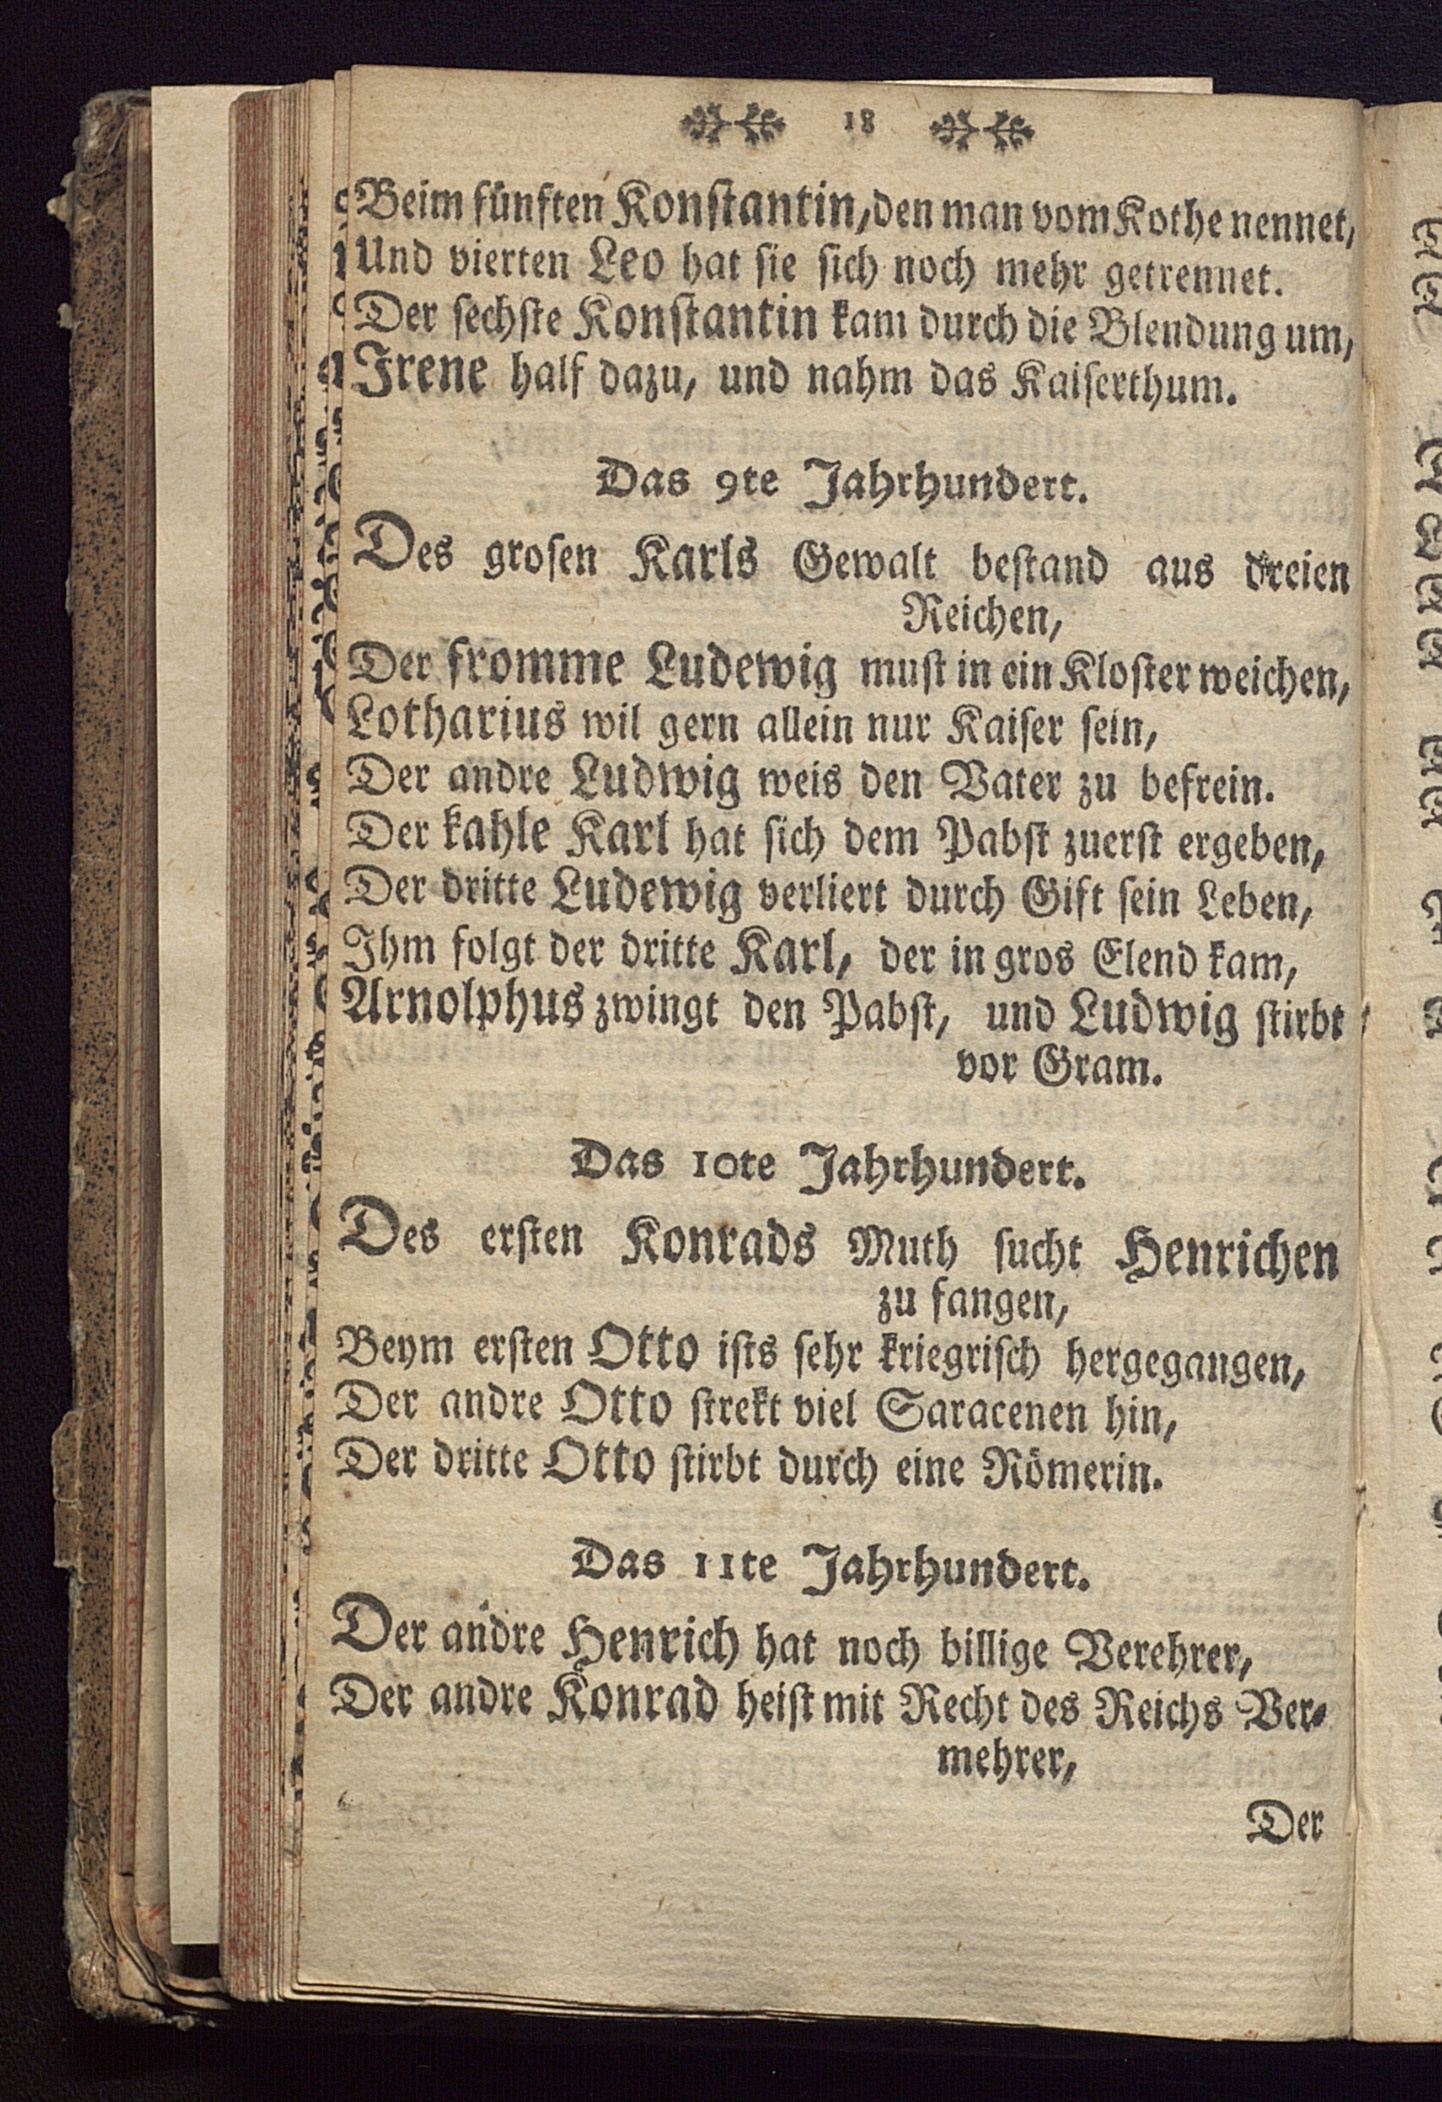 18
Beim fünften Konstantin, den man vom Kothe nennet,
Und vierten Leo hat sie sich noch mehr getrennet.
Der sechste Konstantin kam durch die Blendung um,
Irene half dazu, und nahm das Kaiserthum.
Das 9te Jahrhundert.
Des grosen Karls Gewalt bestand aus dreien
Reichen,
Der fromme Ludewig must in ein Kloster weichen,
Lotharius wil gern allein nur Kaiser sein,
Der andre Ludwig weis den Vater zu befrein.
Der kahle Karl hat sich dem Pabst zuerst ergeben,
Der dritte Ludewig verliert durch Gift sein Leben,
Ihm folgt der dritte Karl, der in gros Elend kam,
Arnolphus zwingt den Pabst, und Ludwig stirbt
vor Gram.
Das 10te Jahrhundert.
Des ersten Konrads Muth sucht Henrichen
zu fangen,
Beym ersten Otto ists sehr kriegrisch hergegangen,
Der andre Otto strekt viel Saracenen hin,
Der dritte Otto stirbt durch eine Römerin.
Das 11te Jahrhundert.
Der andre Henrich hat noch billige Verehrer,
Der andre Konrad heist mit Recht des Reichs Ver-
mehrer,
Der